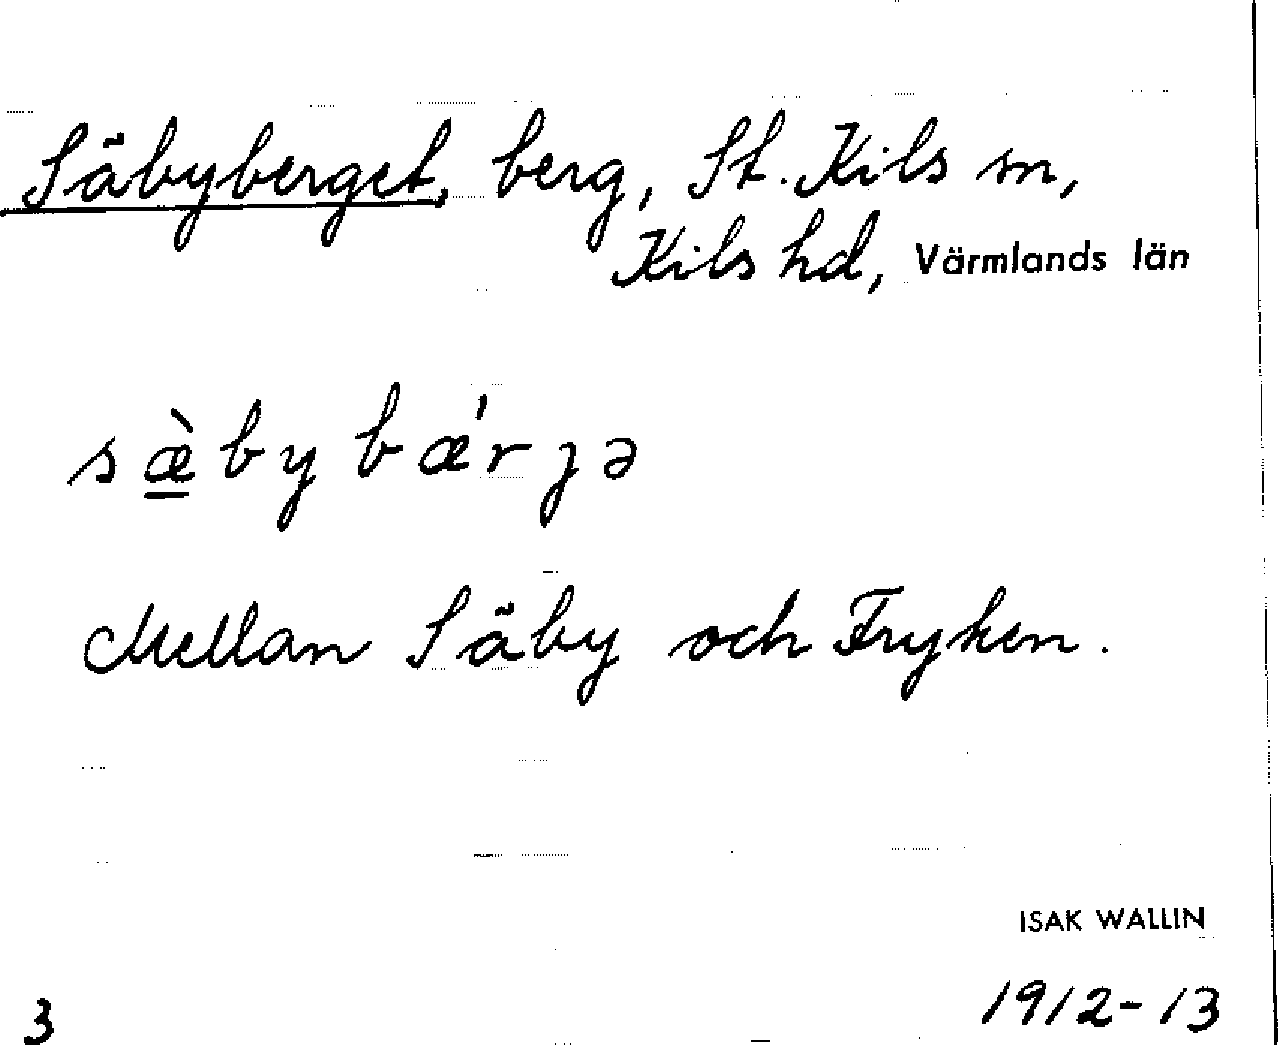 Säbyberget, berg, St. Kils sn,
Kils hd, Värmlands län
sæ̀by bǽrȷə
Mellan Säby och Fryken.
ISAK WALLIN
3
1912-13